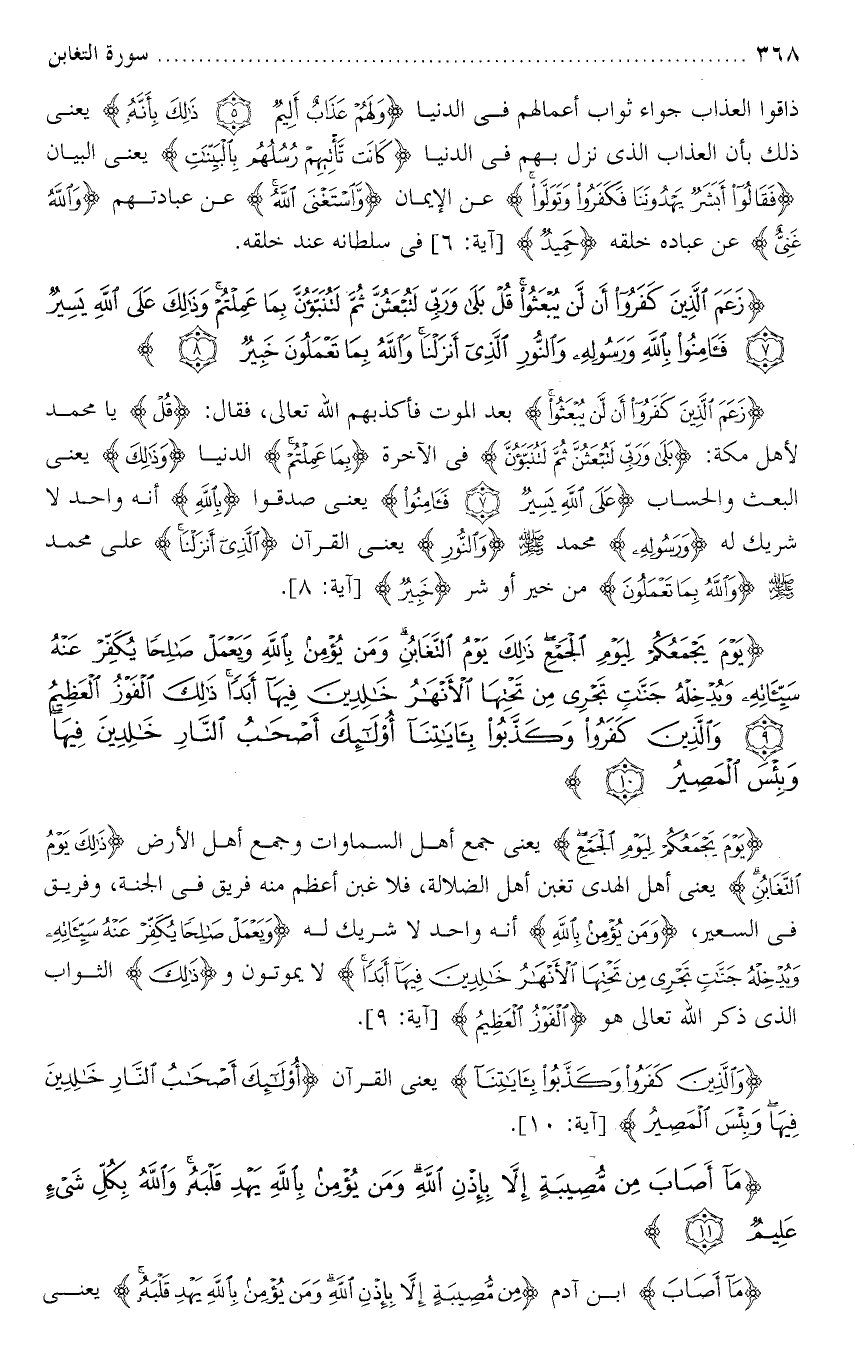 ٣٦٨ ........................................................................ سورة التغابن
ذاقوا العذاب جواء ثواب أعمالهم فى الدنيا ﴿وَلَهُمْ عَذَابٌ أَلِيمٌ ۝٥ ذَٰلِكَ بِأَنَّهُ﴾ يعنى
ذلك بأن العذاب الذى نزل بهم فى الدنيا ﴿كَانَت تَّأْتِيهِمْ رُسُلُهُم بِالْبَيِّنَٰتِ﴾ يعنى البيان
﴿فَقَالُوٓا۟ أَبَشَرٌ يَهْدُونَنَا فَكَفَرُوا۟ وَتَوَلَّوا۟ۚ﴾ عن الإيمان ﴿وَّٱسْتَغْنَى ٱللَّهُۚ﴾ عن عبادتهم ﴿وَٱللَّهُ
غَنِىٌّ﴾ عن عباده خلقه ﴿حَمِيدٌ﴾ [آية: ٦] فى سلطانه عند خلقه.
﴿زَعَمَ ٱلَّذِينَ كَفَرُوٓا۟ أَن لَّن يُبْعَثُوا۟ۚ قُلْ بَلَىٰ وَرَبِّى لَتُبْعَثُنَّ ثُمَّ لَتُنَبَّؤُنَّ بِمَا عَمِلْتُمْۚ وَذَٰلِكَ عَلَى ٱللَّهِ يَسِيرٌ
۝٧ فَـَٔامِنُوا۟ بِٱللَّهِ وَرَسُولِهِۦ وَٱلنُّورِ ٱلَّذِىٓ أَنزَلْنَاۚ وَٱللَّهُ بِمَا تَعْمَلُونَ خَبِيرٌ ۝٨﴾
﴿زَعَمَ ٱلَّذِينَ كَفَرُوٓا۟ أَن لَّن يُبْعَثُوا۟ۚ﴾ بعد الموت فأكذبهم الله تعالى، فقال: ﴿قُلْ﴾ يا محمد
لأهل مكة: ﴿بَلَىٰ وَرَبِّى لَتُبْعَثُنَّ ثُمَّ لَتُنَبَّؤُنَّ﴾ فى الآخرة ﴿بِمَا عَمِلْتُمْۚ﴾ الدنيا ﴿وَذَٰلِكَ﴾ يعنى
البعث والحساب ﴿عَلَى ٱللَّهِ يَسِيرٌ ۝٧ فَـَٔامِنُوا۟﴾ يعنى صدقوا ﴿بِٱللَّهِ﴾ أنه واحد لا
شريك له ﴿وَرَسُولِهِۦ﴾ محمد ﷺ ﴿وَٱلنُّورِ﴾ يعنى القرآن ﴿ٱلَّذِىٓ أَنزَلْنَاۚ﴾ على محمد
ﷺ ﴿وَٱللَّهُ بِمَا تَعْمَلُونَ﴾ من خير أو شر ﴿خَبِيرٌ﴾ [آية: ٨].
﴿يَوْمَ يَجْمَعُكُمْ لِيَوْمِ ٱلْجَمْعِۖ ذَٰلِكَ يَوْمُ ٱلتَّغَابُنِۗ وَمَن يُؤْمِنۢ بِٱللَّهِ وَيَعْمَلْ صَٰلِحًا يُكَفِّرْ عَنْهُ
سَيِّـَٔاتِهِۦ وَيُدْخِلْهُ جَنَّٰتٍ تَجْرِى مِن تَحْتِهَا ٱلْأَنْهَٰرُ خَٰلِدِينَ فِيهَآ أَبَدًاۚ ذَٰلِكَ ٱلْفَوْزُ ٱلْعَظِيمُ
۝٩ وَٱلَّذِينَ كَفَرُوا۟ وَكَذَّبُوا۟ بِـَٔايَٰتِنَآ أُو۟لَٰٓئِكَ أَصْحَٰبُ ٱلنَّارِ خَٰلِدِينَ فِيهَاۖ
وَبِئْسَ ٱلْمَصِيرُ ۝١٠﴾
﴿يَوْمَ يَجْمَعُكُمْ لِيَوْمِ ٱلْجَمْعِۖ﴾ يعنى جمع أهل السماوات وجمع أهل الأرض ﴿ذَٰلِكَ يَوْمُ
ٱلتَّغَابُنِۗ﴾ يعنى أهل الهدى تغبن أهل الضلالة، فلا غبن أعظم منه فريق فى الجنة، وفريق
فى السعير، ﴿وَمَن يُؤْمِنۢ بِٱللَّهِ﴾ أنه واحد لا شريك له ﴿وَيَعْمَلْ صَٰلِحًا يُكَفِّرْ عَنْهُ سَيِّـَٔاتِهِۦ
وَيُدْخِلْهُ جَنَّٰتٍ تَجْرِى مِن تَحْتِهَا ٱلْأَنْهَٰرُ خَٰلِدِينَ فِيهَآ أَبَدًاۚ﴾ لا يموتون و﴿ذَٰلِكَ﴾ الثواب
الذى ذكر الله تعالى هو ﴿ٱلْفَوْزُ ٱلْعَظِيمُ﴾ [آية: ٩].
﴿وَٱلَّذِينَ كَفَرُوا۟ وَكَذَّبُوا۟ بِـَٔايَٰتِنَآ﴾ يعنى القرآن ﴿أُو۟لَٰٓئِكَ أَصْحَٰبُ ٱلنَّارِ خَٰلِدِينَ
فِيهَاۖ وَبِئْسَ ٱلْمَصِيرُ﴾ [آية: ١٠].
﴿مَآ أَصَابَ مِن مُّصِيبَةٍ إِلَّا بِإِذْنِ ٱللَّهِۗ وَمَن يُؤْمِنۢ بِٱللَّهِ يَهْدِ قَلْبَهُۥۚ وَٱللَّهُ بِكُلِّ شَىْءٍ
عَلِيمٌ ۝١١﴾
﴿مَآ أَصَابَ﴾ ابن آدم ﴿مِن مُّصِيبَةٍ إِلَّا بِإِذْنِ ٱللَّهِۗ وَمَن يُؤْمِنۢ بِٱللَّهِ يَهْدِ قَلْبَهُۥۚ﴾ يعنى